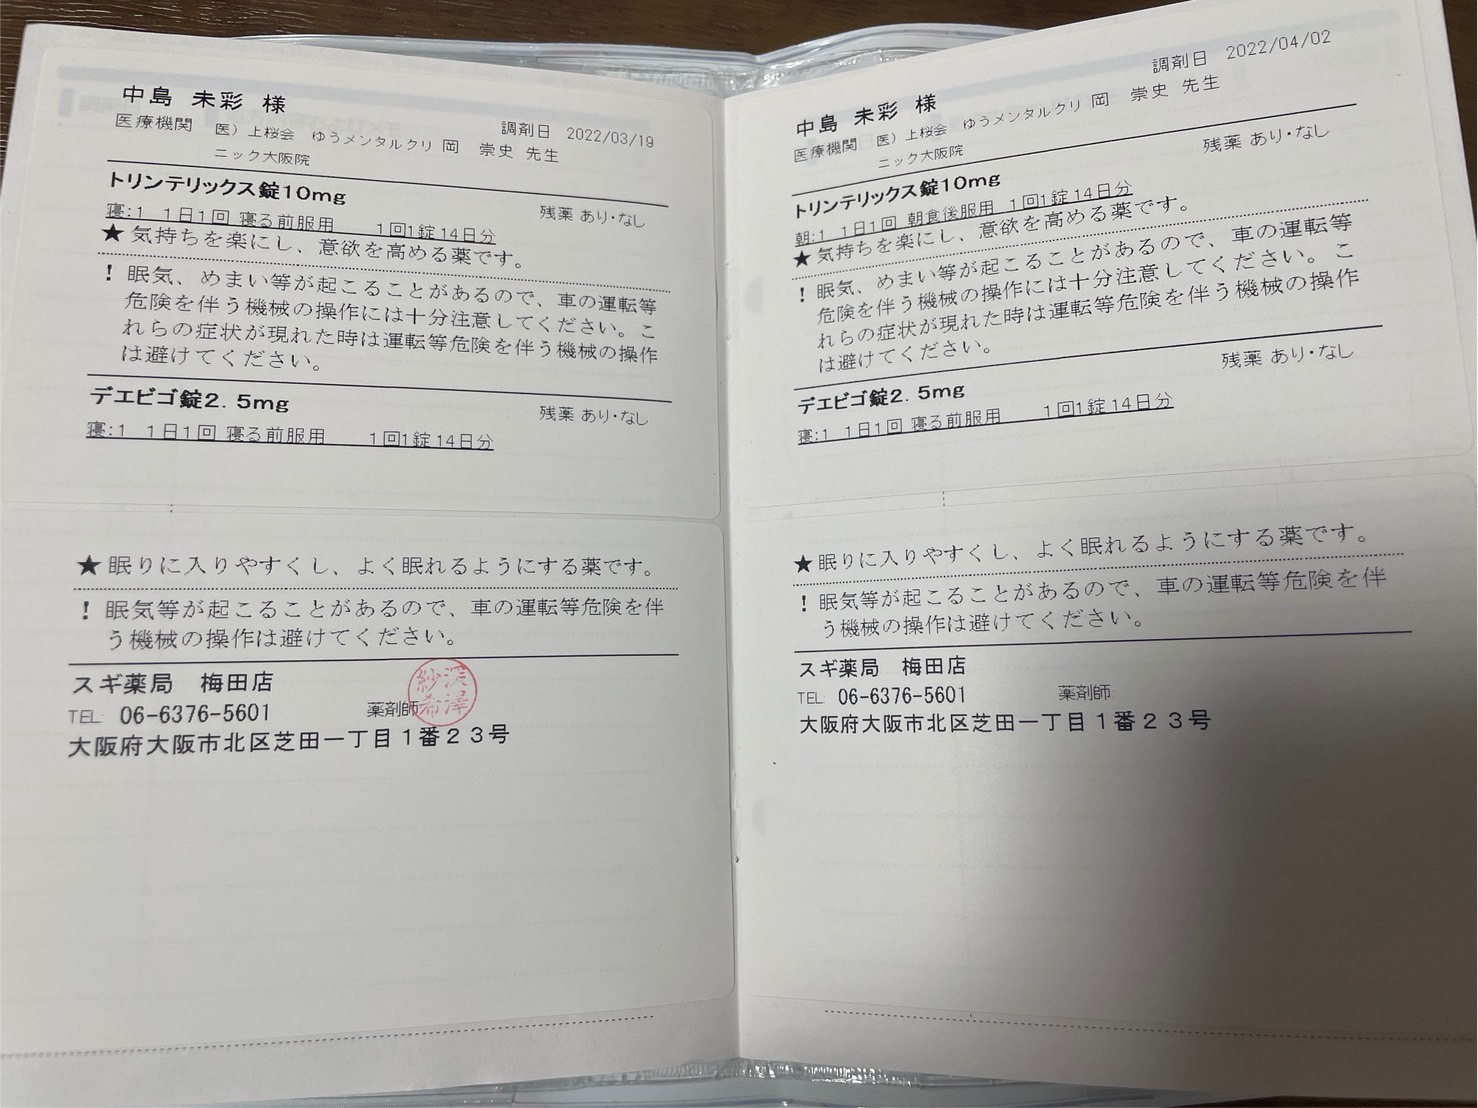 中島 未彩 様
調剤日 2022/03/19
医療機関 医）上桜会 ゆうメンタルクリ 岡 崇史 先生
ニック大阪院
トリンテリックス錠10mg
残薬 あり・なし
寝:1 1日1回 寝る前服用 1回1錠 14日分
★気持ちを楽にし、意欲を高める薬です。
！眠気、めまい等が起こることがあるので、車の運転等
危険を伴う機械の操作には十分注意してください。こ
れらの症状が現れた時は運転等危険を伴う機械の操作
は避けてください。
デエビゴ錠2.5mg
残薬 あり・なし
寝:1 1日1回 寝る前服用 1回1錠 14日分
★眠りに入りやすくし、よく眠れるようにする薬です。
！眠気等が起こることがあるので、車の運転等危険を伴
う機械の操作は避けてください。
スギ薬局 梅田店
TEL: 06-6376-5601 薬剤師
深澤
紗希
大阪府大阪市北区芝田一丁目1番23号
調剤日 2022/04/02
中島 未彩 様
医療機関 医）上桜会 ゆうメンタルクリ 岡 崇史 先生
ニック大阪院
残薬 あり・なし
トリンテリックス錠10mg
朝:1 1日1回 朝食後服用 1回1錠 14日分
★気持ちを楽にし、意欲を高める薬です。
！眠気、めまい等が起こることがあるので、車の運転等
危険を伴う機械の操作には十分注意してください。こ
れらの症状が現れた時は運転等危険を伴う機械の操作
は避けてください。
デエビゴ錠2.5mg
残薬 あり・なし
寝:1 1日1回 寝る前服用 1回1錠 14日分
★眠りに入りやすくし、よく眠れるようにする薬です。
！眠気等が起こることがあるので、車の運転等危険を伴
う機械の操作は避けてください。
スギ薬局 梅田店
TEL: 06-6376-5601 薬剤師
大阪府大阪市北区芝田一丁目1番23号